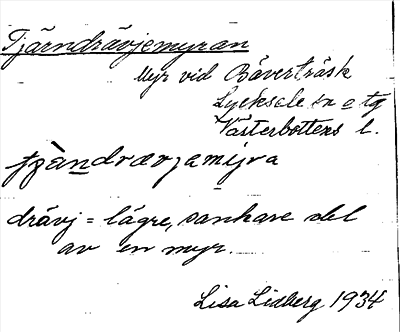 Tjärndrävjemyran
Myr vid Bäverträsk
Lycksele sn o tg
Västerbottens l.
tjä̀ndrævjamy̨ra
drävj = lägre, sankare del
av en myr.
Lisa Lidberg 1934